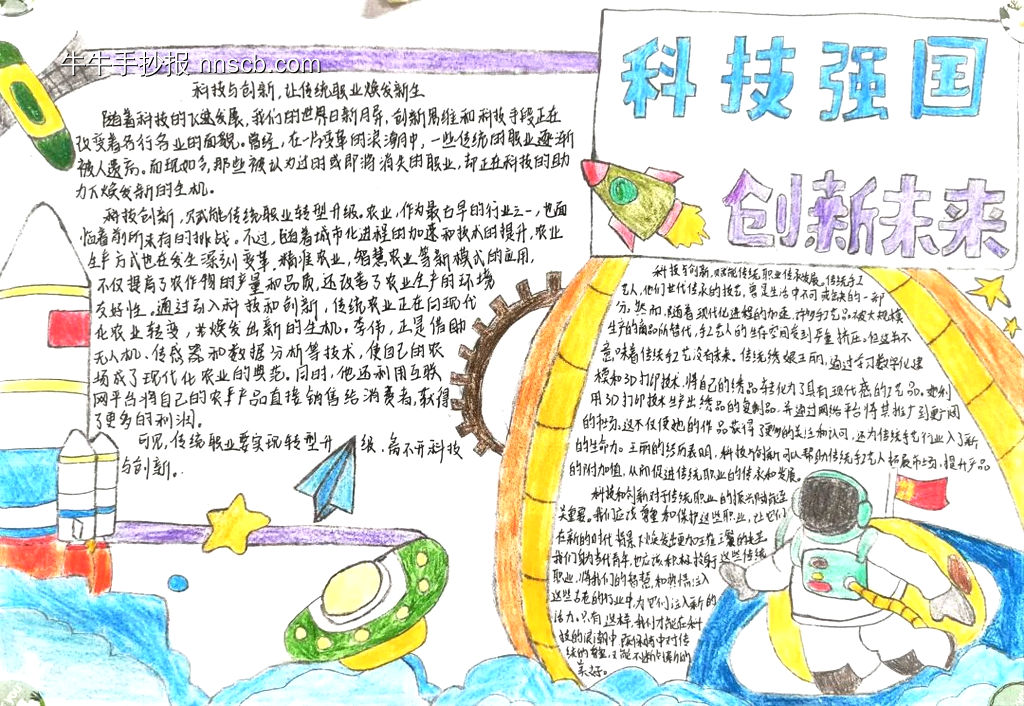 牛牛手抄报 nnscb.com
科技强国
创新未来
科技与创新,让传统职业焕发新生
随着科技的飞速发展,我们的世界日新月异,创新思维和科技手段正在
改变着各行各业的面貌。曾经,在一片变革的浪潮中,一些传统的职业逐渐
被人遗忘。而现如今,那些被认为过时或即将消失的职业,却正在科技的助
力下焕发新的生机。
科技创新,赋能传统职业转型升级。农业,作为最古早的行业之一,也面
临着前所未有的挑战。不过,随着城市化进程的加速和技术的提升,农业
生产方式也在发生深刻变革,精准农业,智慧农业等新模式的应用,
不仅提高了农作物的产量和品质,还改善了农业生产的环境
友好性。通过引入科技和创新,传统农业正在向现代
化农业转变,焕发出新的生机。李伟,正是借助
无人机、传感器和数据分析等技术,使自己的农
场成了现代化农业的典范。同时,他还利用互联
网平台将自己的农产品直接销售给消费者,获得
了更多的利润。
可见,传统职业要实现转型升级,离不开科技
与创新。
科技与创新,赋能传统职业传承发展。传统手工
艺人,他们世代传承的技艺,曾是生活中不可或缺的一部
分。然而,随着现代化进程的加速,许多手工艺品被大规模
生产的商品所替代,手工艺人的生存空间受到严重挤压。但这并不
意味着传统手工艺没有未来。传统绣娘王丽,通过学习数字化建
模和3D打印技术,将自己的绣品转化为了具有现代感的工艺品。她利
用3D打印技术生产出绣品的复制品,并通过网络平台将其推广到更广阔
的市场,这不仅使她的作品获得了更多的关注和认可,还为传统手工艺行业注入了新
的生命力。王丽的经历表明,科技与创新可以帮助传统手工艺人拓展市场,提升产品
的附加值,从而促进传统职业的传承和发展。
科技和创新对于传统职业的振兴赋能至
关重要。我们应该尊重和保护这些职业,让它们
在新的时代背景下焕发出更加
我们身为当代青年,也应该积极投身这些传统
职业,将我们的智慧和热情注入
这些古老的行业中,为它们注入新的
活力。只有这样,我们才能在科
技的浪潮中,既保持中对传
统的尊重,又能不断创新的
美好。